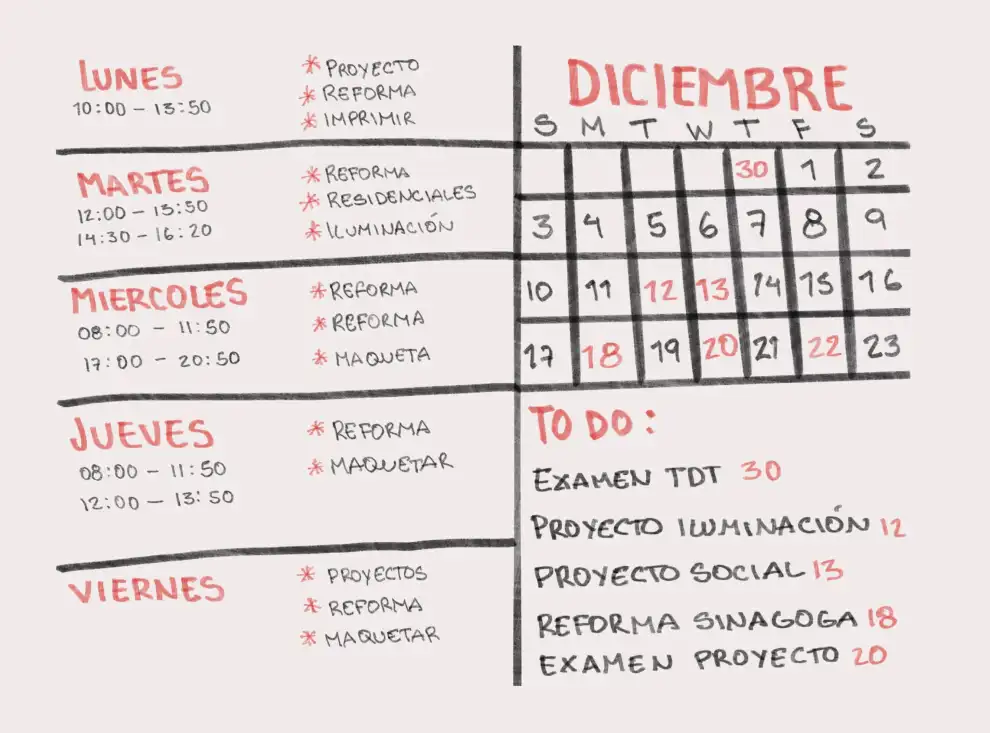 LUNES
10:00 – 13:50
* PROYECTO
* REFORMA
* IMPRIMIR
MARTES
12:00 – 13:50
14:30 – 16:20
* REFORMA
* RESIDENCIALES
* ILUMINACIÓN
MIERCOLES
08:00 – 11:50
17:00 – 20:50
* REFORMA
* REFORMA
* MAQUETA
JUEVES
08:00 – 11:50
12:00 – 13:50
* REFORMA
* MAQUETAR
VIERNES
* PROYECTOS
* REFORMA
* MAQUETAR
DICIEMBRE
S M T W T F S
30 1 2
3 4 5 6 7 8 9
10 11 12 13 14 15 16
17 18 19 20 21 22 23
TO DO:
EXAMEN TDT 30
PROYECTO ILUMINACIÓN 12
PROYECTO SOCIAL 13
REFORMA SINAGOGA 18
EXAMEN PROYECTO 20